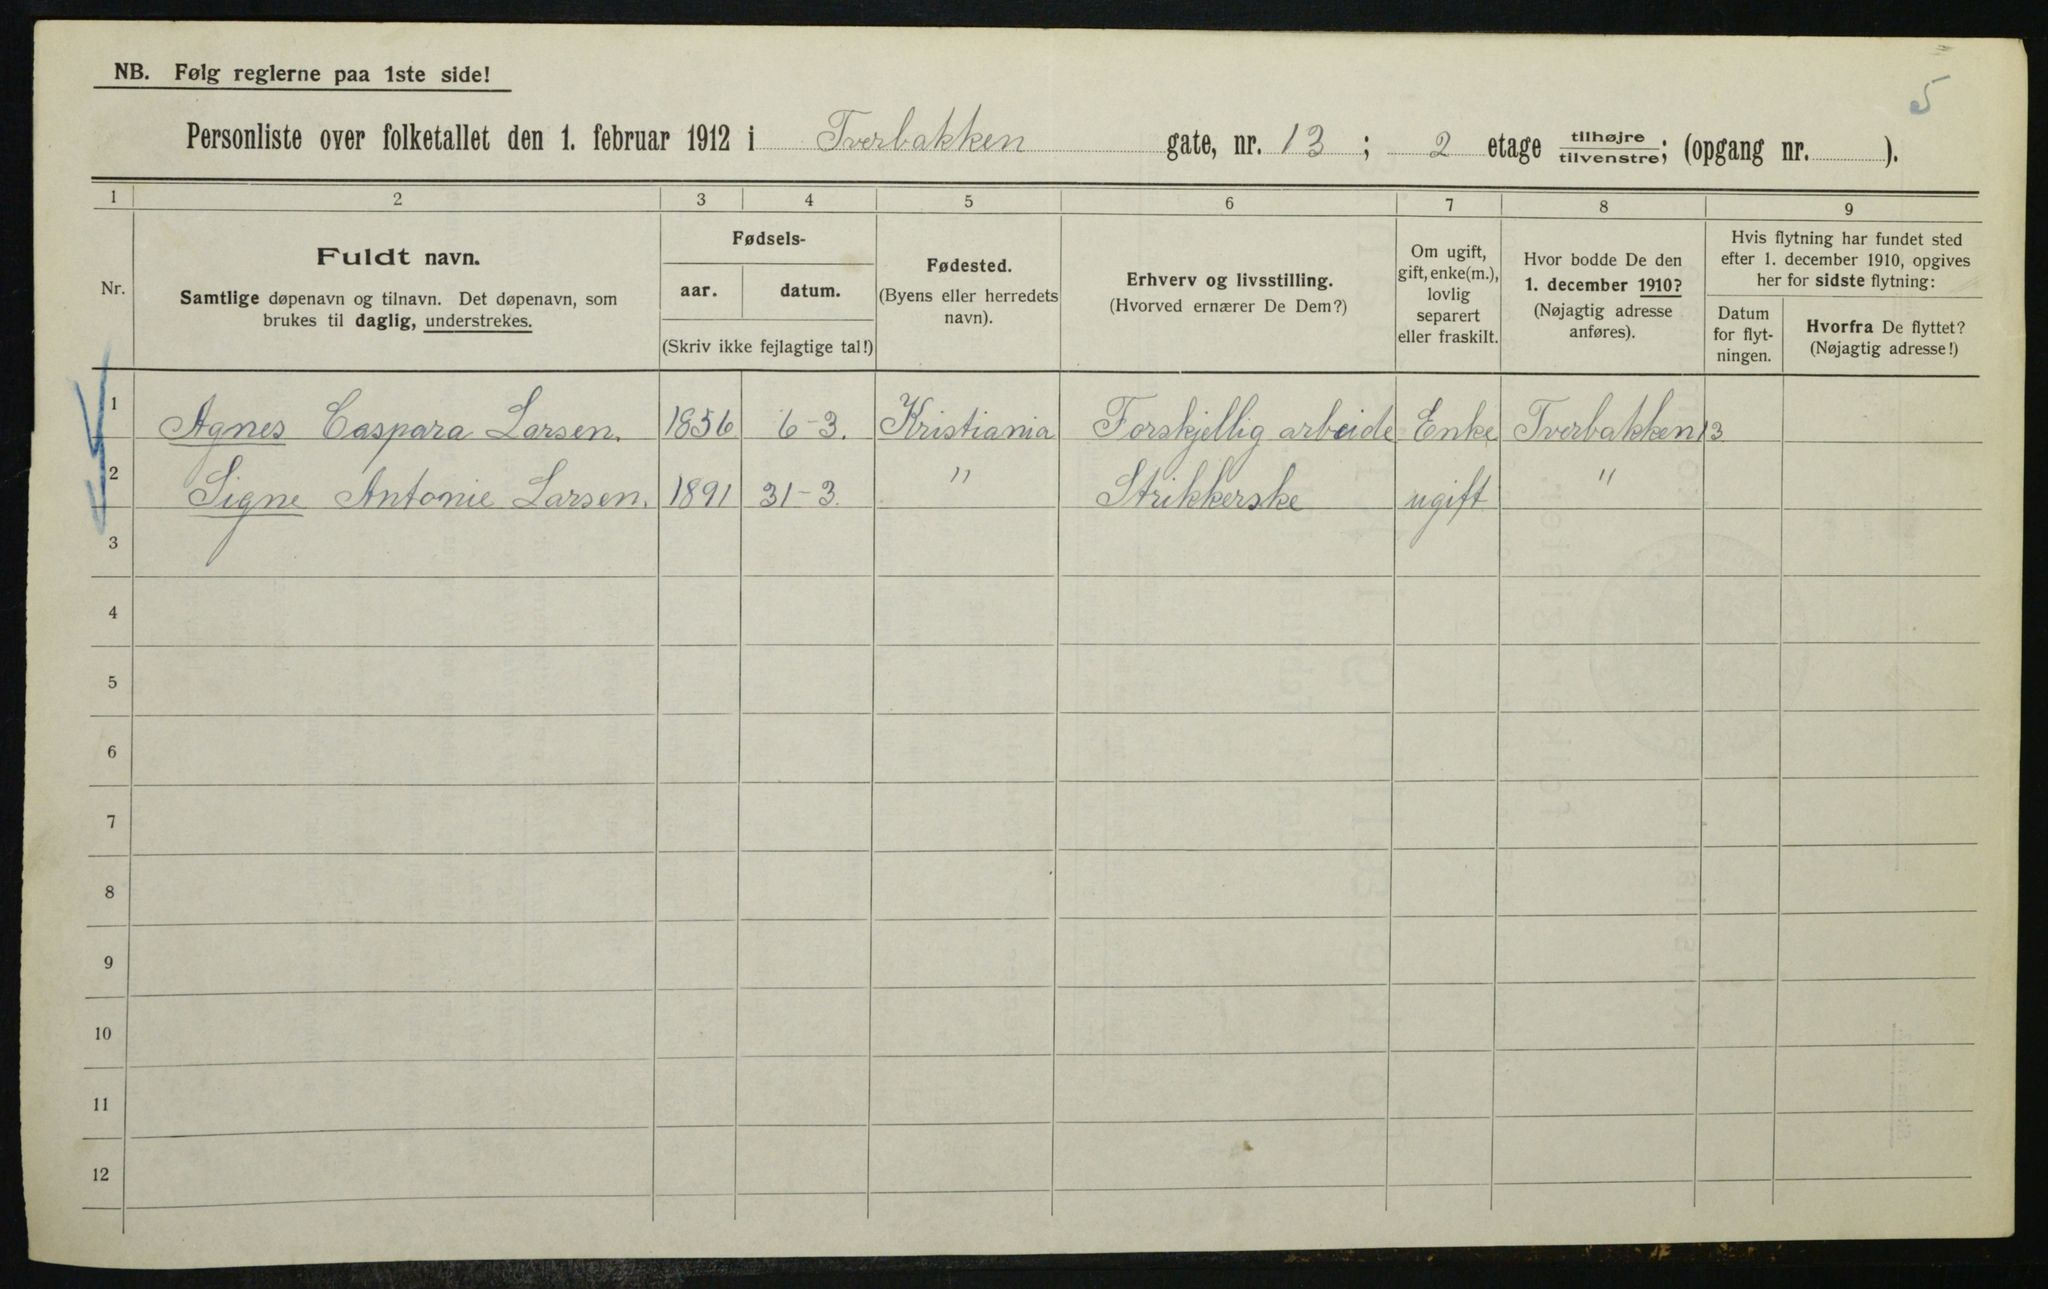 5
NB. Følg reglerne paa 1ste side!
Personliste over folketallet den 1. februar 1912 i Tverbakken gate, nr. 13; 2 etage tilhøjre/tilvenstre; (opgang nr. ).
1 2 3 4 5 6 7 8 9
Nr.
Fuldt navn.
Samtlige døpenavn og tilnavn. Det døpenavn, som
brukes til daglig, understrekes.
Fødsels-
aar. datum.
(Skriv ikke fejlagtige tal!)
Fødested.
(Byens eller herredets
navn).
Erhverv og livsstilling.
(Hvorved ernærer De Dem?)
Om ugift,
gift, enke(m.),
lovlig
separert
eller fraskilt.
Hvor bodde De den
1. december 1910?
(Nøjagtig adresse
anføres).
Hvis flytning har fundet sted
efter 1. december 1910, opgives
her for sidste flytning:
Datum
for flyt-
ningen.
Hvorfra De flyttet?
(Nøjagtig adresse!)
1 Agnes Caspara Larsen. 1856 6-3. Kristiania Forskjellig arbeide Enke Tverbakken 13
2 Signe Antonie Larsen. 1891 31-3. " Strikkerske ugift "
3
4
5
6
7
8
9
10
11
12